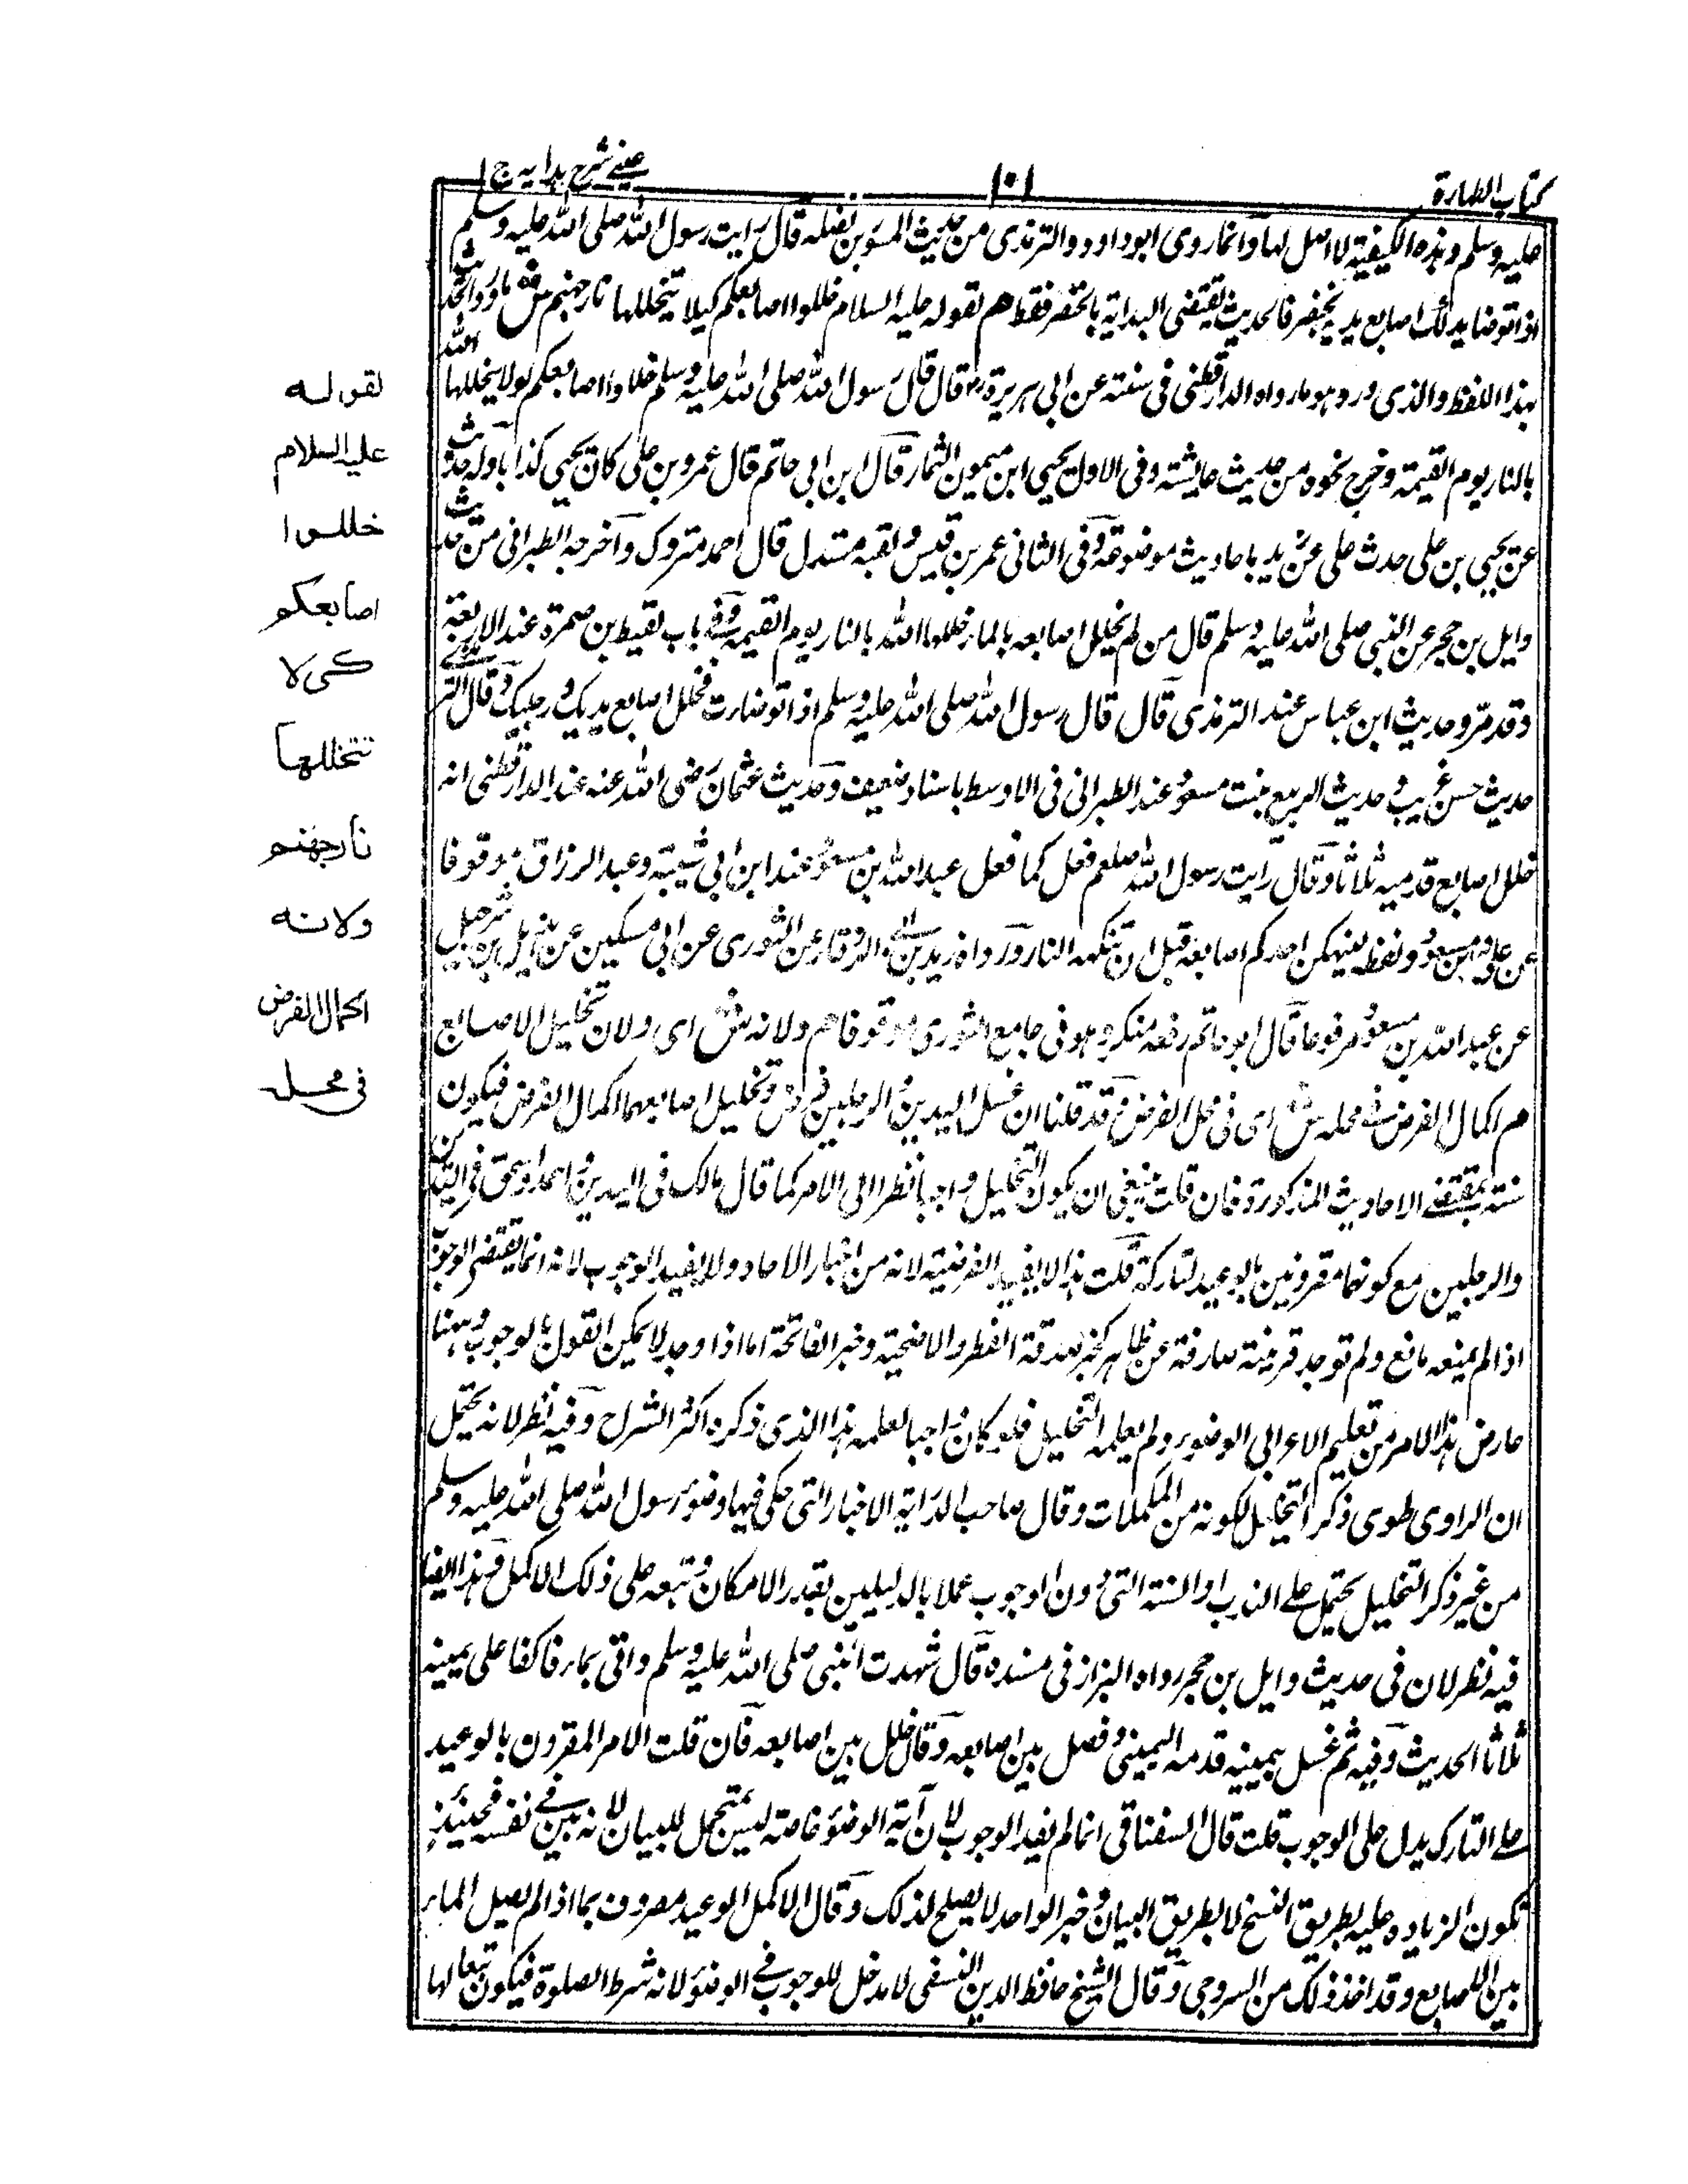 كتاب الطهارة
١٠١
عيني شرح هدايه ج ١
عليه وسلم وهذه الكيفية لا اصل لها وانما روى ابو داود والترمذى من حديث المسور بن فضلة قال رايت رسول الله صلى الله عليه وسلم
اذا توضا يدلك اصابع يديه بخنصر فالحديث يقتضى البداية بالخنصر فقط هم لقوله عليه السلام خللوا اصابعكم كيلا يتخللها نار جهنم ش ما ورد الحديث
بهذا اللفظ والذى ورد هو ما رواه الدارقطنى فى سننه عن ابى هريرة رض قال قال رسول الله صلى الله عليه وسلم خللوا اصابعكم لولا يخللها الله
بالنار يوم القيمة وخرج نحوه من حديث عايشة وفى الاول يحيى ابن ميمون التمار قال ابن ابى حاتم قال عمرو بن على كان يحيى كذابا وله حديث
عن يحيى بن على حدث على عن يد باحاديث موضوعة وفى الثانى عمر بن قيس ولقبه مستدل قال احمد متروك وآخرجه الطبرانى من حديث
وايل بن حجر عن النبى صلى الله عليه وسلم قال من لم يخلل اصابعه بالماء خللها الله بالنار يوم القيمة وفى باب لقيط بن صمرة عند الاربعة
وقد مر وحديث ابن عباس عند الترمذى قال قال رسول الله صلى الله عليه وسلم اذا توضات فخلل اصابع يديك ورجليك وقال الترمذى
حديث حسن غريب وحديث الربيع بنت مسعود عند الطبرانى فى الاوسط باسناد ضعيف وحديث عثمان رضى الله عنه عند الدارقطنى انه
خلل اصابع قدميه ثلاثا وقال رايت رسول الله صلعم فعل كما فعل عبد الله بن مسعود عند ابن ابى شيبة وعبد الرزاق موقوفا
ابن مسعود ولفظه لينهكن احدكم اصابعه قبل ان تنكهه النار ورواه زيد بن ابى الزرقاء عن الثورى عن ابى مسكين عن هزيل بن شرحبيل
عن عبد الله بن مسعود مرفوعا قال ابو حاتم رفعه منكر وهو فى جامع الثورى موقوفا هم ولانه ش اى ولان تخليل الاصابع
م اكمال الفرض فى محله ش اى فى محل الفرض قد قلنا ان غسل اليدين والرجلين فرض وتخليل اصابعهما اكمال الفرض فيكون
سنة بمقتضى الاحاديث المذكورة فان قلت ينبغى ان يكون التخليل واجبا نظرا الى الامر كما قال مالك فى اليدين واحمد واسحق فى اليدين
والرجلين مع كونها مقرونين بالوعيد لتاركة قلت هذا لا يفيد الفرضية لانه من اخبار الاحاد ولا يفيد الوجوب لانه انما يقتضى الوجوب
اذا لم يمنعه مانع ولم توجد قرينة صارفة عن ظاهر كخبر صدقة الفطر والاضحية وخبر الفاتحة اما اذا وجد لا يمكن القول بالوجوب وههنا
عارض هذا الامر من تعليم الاعرابى الوضوء ولم يعلمه التخليل فلو كان واجبا لعلمه هذا الذى ذكره اكثر الشراح وفيه نظر لانه يحتمل
ان الراوى طوى ذكر التخليل لكونه من المكملات وقال صاحب الدراية الاخبار التى حكى فيها وضوء رسول الله صلى الله عليه وسلم
من غير ذكر التخليل يحتمل على الندب او السنة التى دون الوجوب عملا بالدليلين بقدر الامكان وتبعه على ذلك الاكمل وهذا ايضا
فيه نظر لان فى حديث وايل بن حجر رواه البزاز فى مسنده قال شهدت النبى صلى الله عليه وسلم واتى بماء فاكفا على يمينه
ثلاثا الحديث وفيه ثم غسل بيمينه قدمه اليمنى وفصل بين اصابعه وقال خلل بين اصابعه فان قلت الامر المقرون بالوعيد
على التارك يدل على الوجوب قلت قال السغناقى انما لم يفد الوجوب لان آية الوضوء خاصة ليس يتحمل للبيان لانه بين فى نفسه فحينئذ
تكون الزيادة عليه بطريق النسخ لا بطريق البيان وخبر الواحد لا يصلح لذلك وقال الاكمل الوعيد مصروف بما اذا لم يصل الماء
بين الاصابع وقد اخذ ذلك من السروجى وقال الشيخ حافظ الدين النسفى لا مدخل للوجوب فى الوضوء لانه شرط الصلوة فيكون تبعا لها
لقوله
عليه السلام
خللوا
اصابعكم
كى لا
تتخللها
نار جهنم
ولانه
اكمال الفرض
فى محله